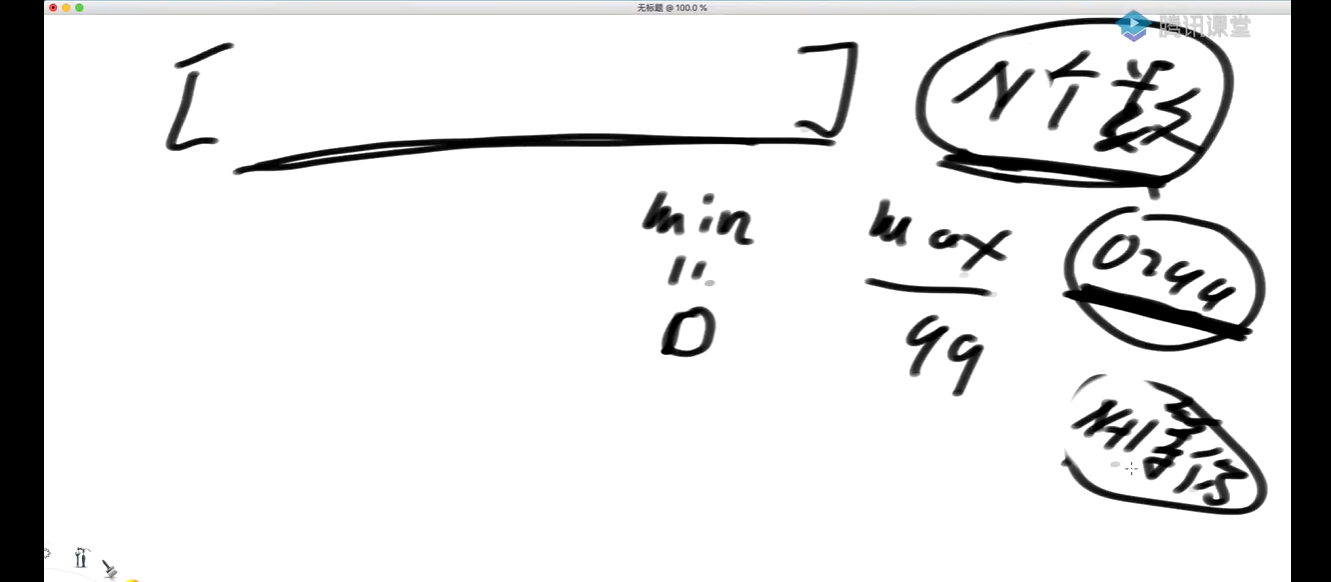 无标题 @ 100.0 %
腾讯课堂
[ ]
N个数
min
max
0~99
=
0
99
N+1等份